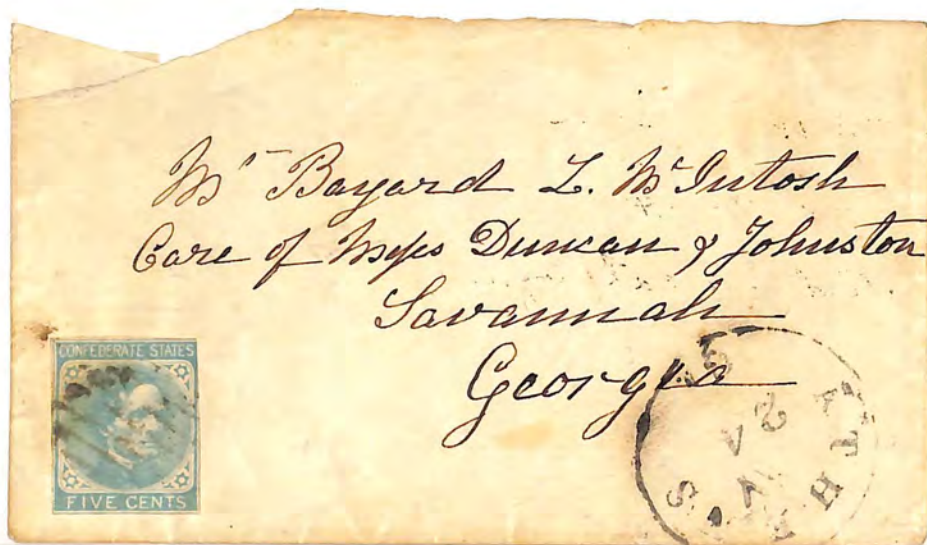 Mr Bayard L. McIntosh
Care of Messrs Duncan & Johnston
Savannah
Georgia
CONFEDERATE STATES
FIVE CENTS